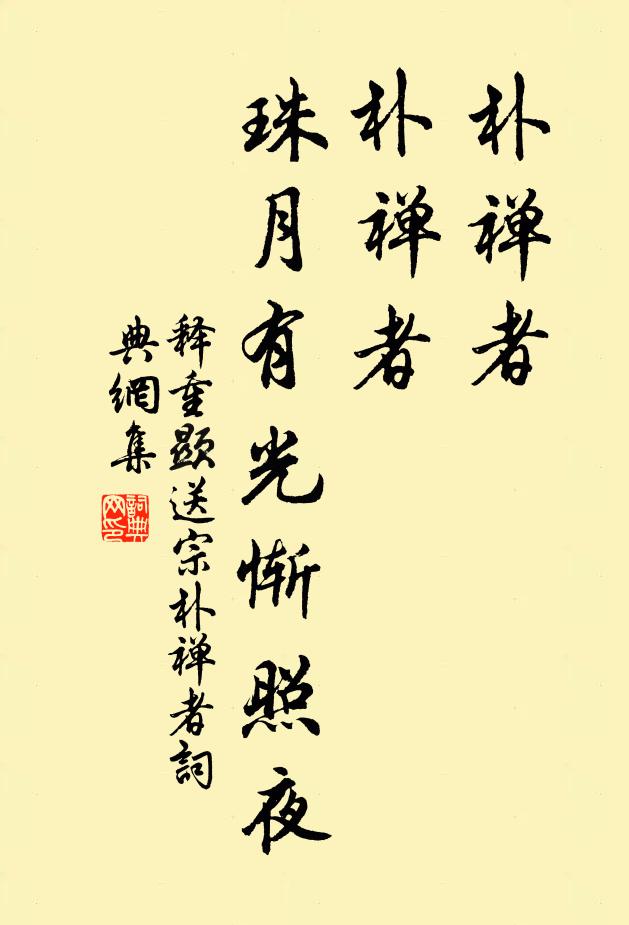 朴禅者
朴禅者
珠月有光惭照夜
释重顯送宗朴禅者詞
典網集
詞典
网印